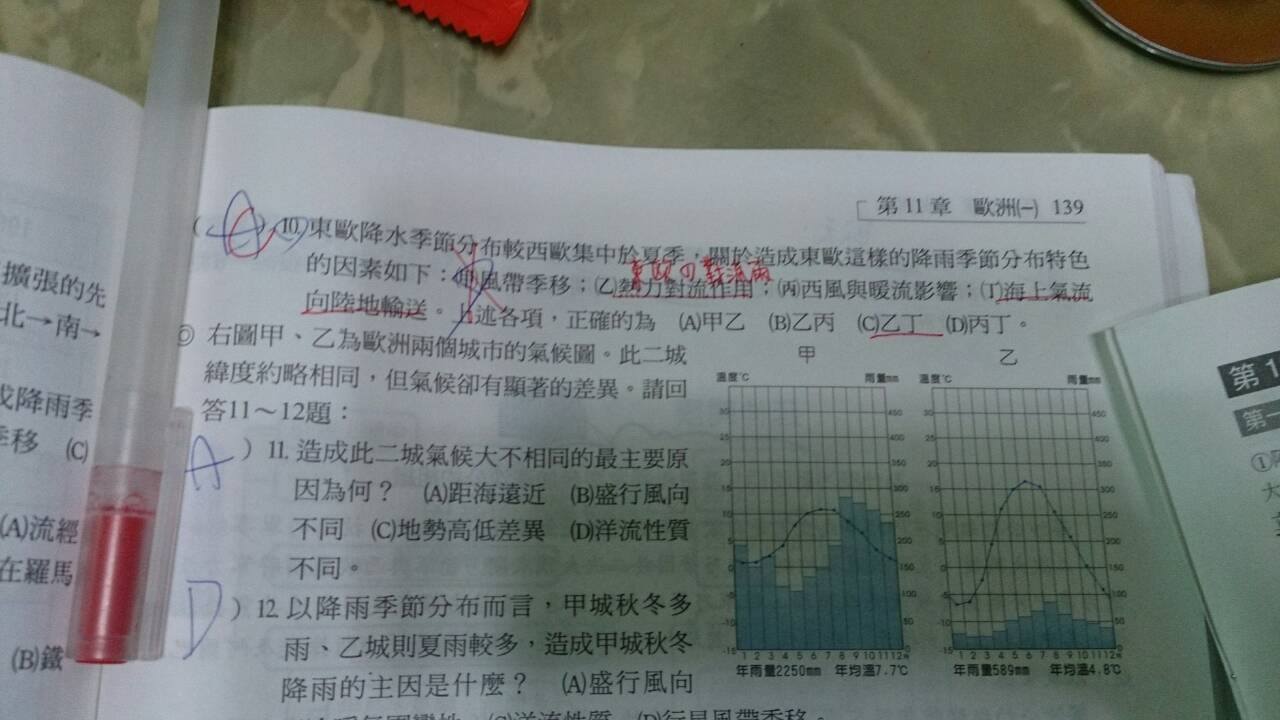 第11章 歐洲(一) 139
( ) 10. 東歐降水季節分布較西歐集中於夏季,關於造成東歐這樣的降雨季節分布特色
東歐の對流雨
的因素如下:(甲)風帶季移;(乙)熱力對流作用;(丙)西風與暖流影響;(丁)海上氣流
向陸地輸送。上述各項,正確的為 (A)甲乙 (B)乙丙 (C)乙丁 (D)丙丁。
◎ 右圖甲、乙為歐洲兩個城市的氣候圖。此二城
緯度約略相同,但氣候卻有顯著的差異。請回
答11~12題:
A ) 11. 造成此二城氣候大不相同的最主要原
因為何? (A)距海遠近 (B)盛行風向
不同 (C)地勢高低差異 (D)洋流性質
不同。
D ) 12. 以降雨季節分布而言,甲城秋冬多
雨、乙城則夏雨較多,造成甲城秋冬
降雨的主因是什麼? (A)盛行風向
(C)洋流性質 (D)行星風帶季移。
甲
溫度℃ 雨量mm
30 450
25
20
15 300
10 250
5 200
0 150
-5 100
-10 50
-15
1 2 3 4 5 6 7 8 9 10 11 12月
年雨量2250mm 年均溫7.7℃
乙
溫度℃ 雨量mm
30 450
25
20
15 300
10 250
5 200
0 150
-5 100
-10 50
-15
1 2 3 4 5 6 7 8 9 10 11 12月
年雨量589mm 年均溫4.8℃
擴張的先
北→南→
降雨季
季移 (C)
(A)流經
在羅馬
(B)鐵
第1
第一
①